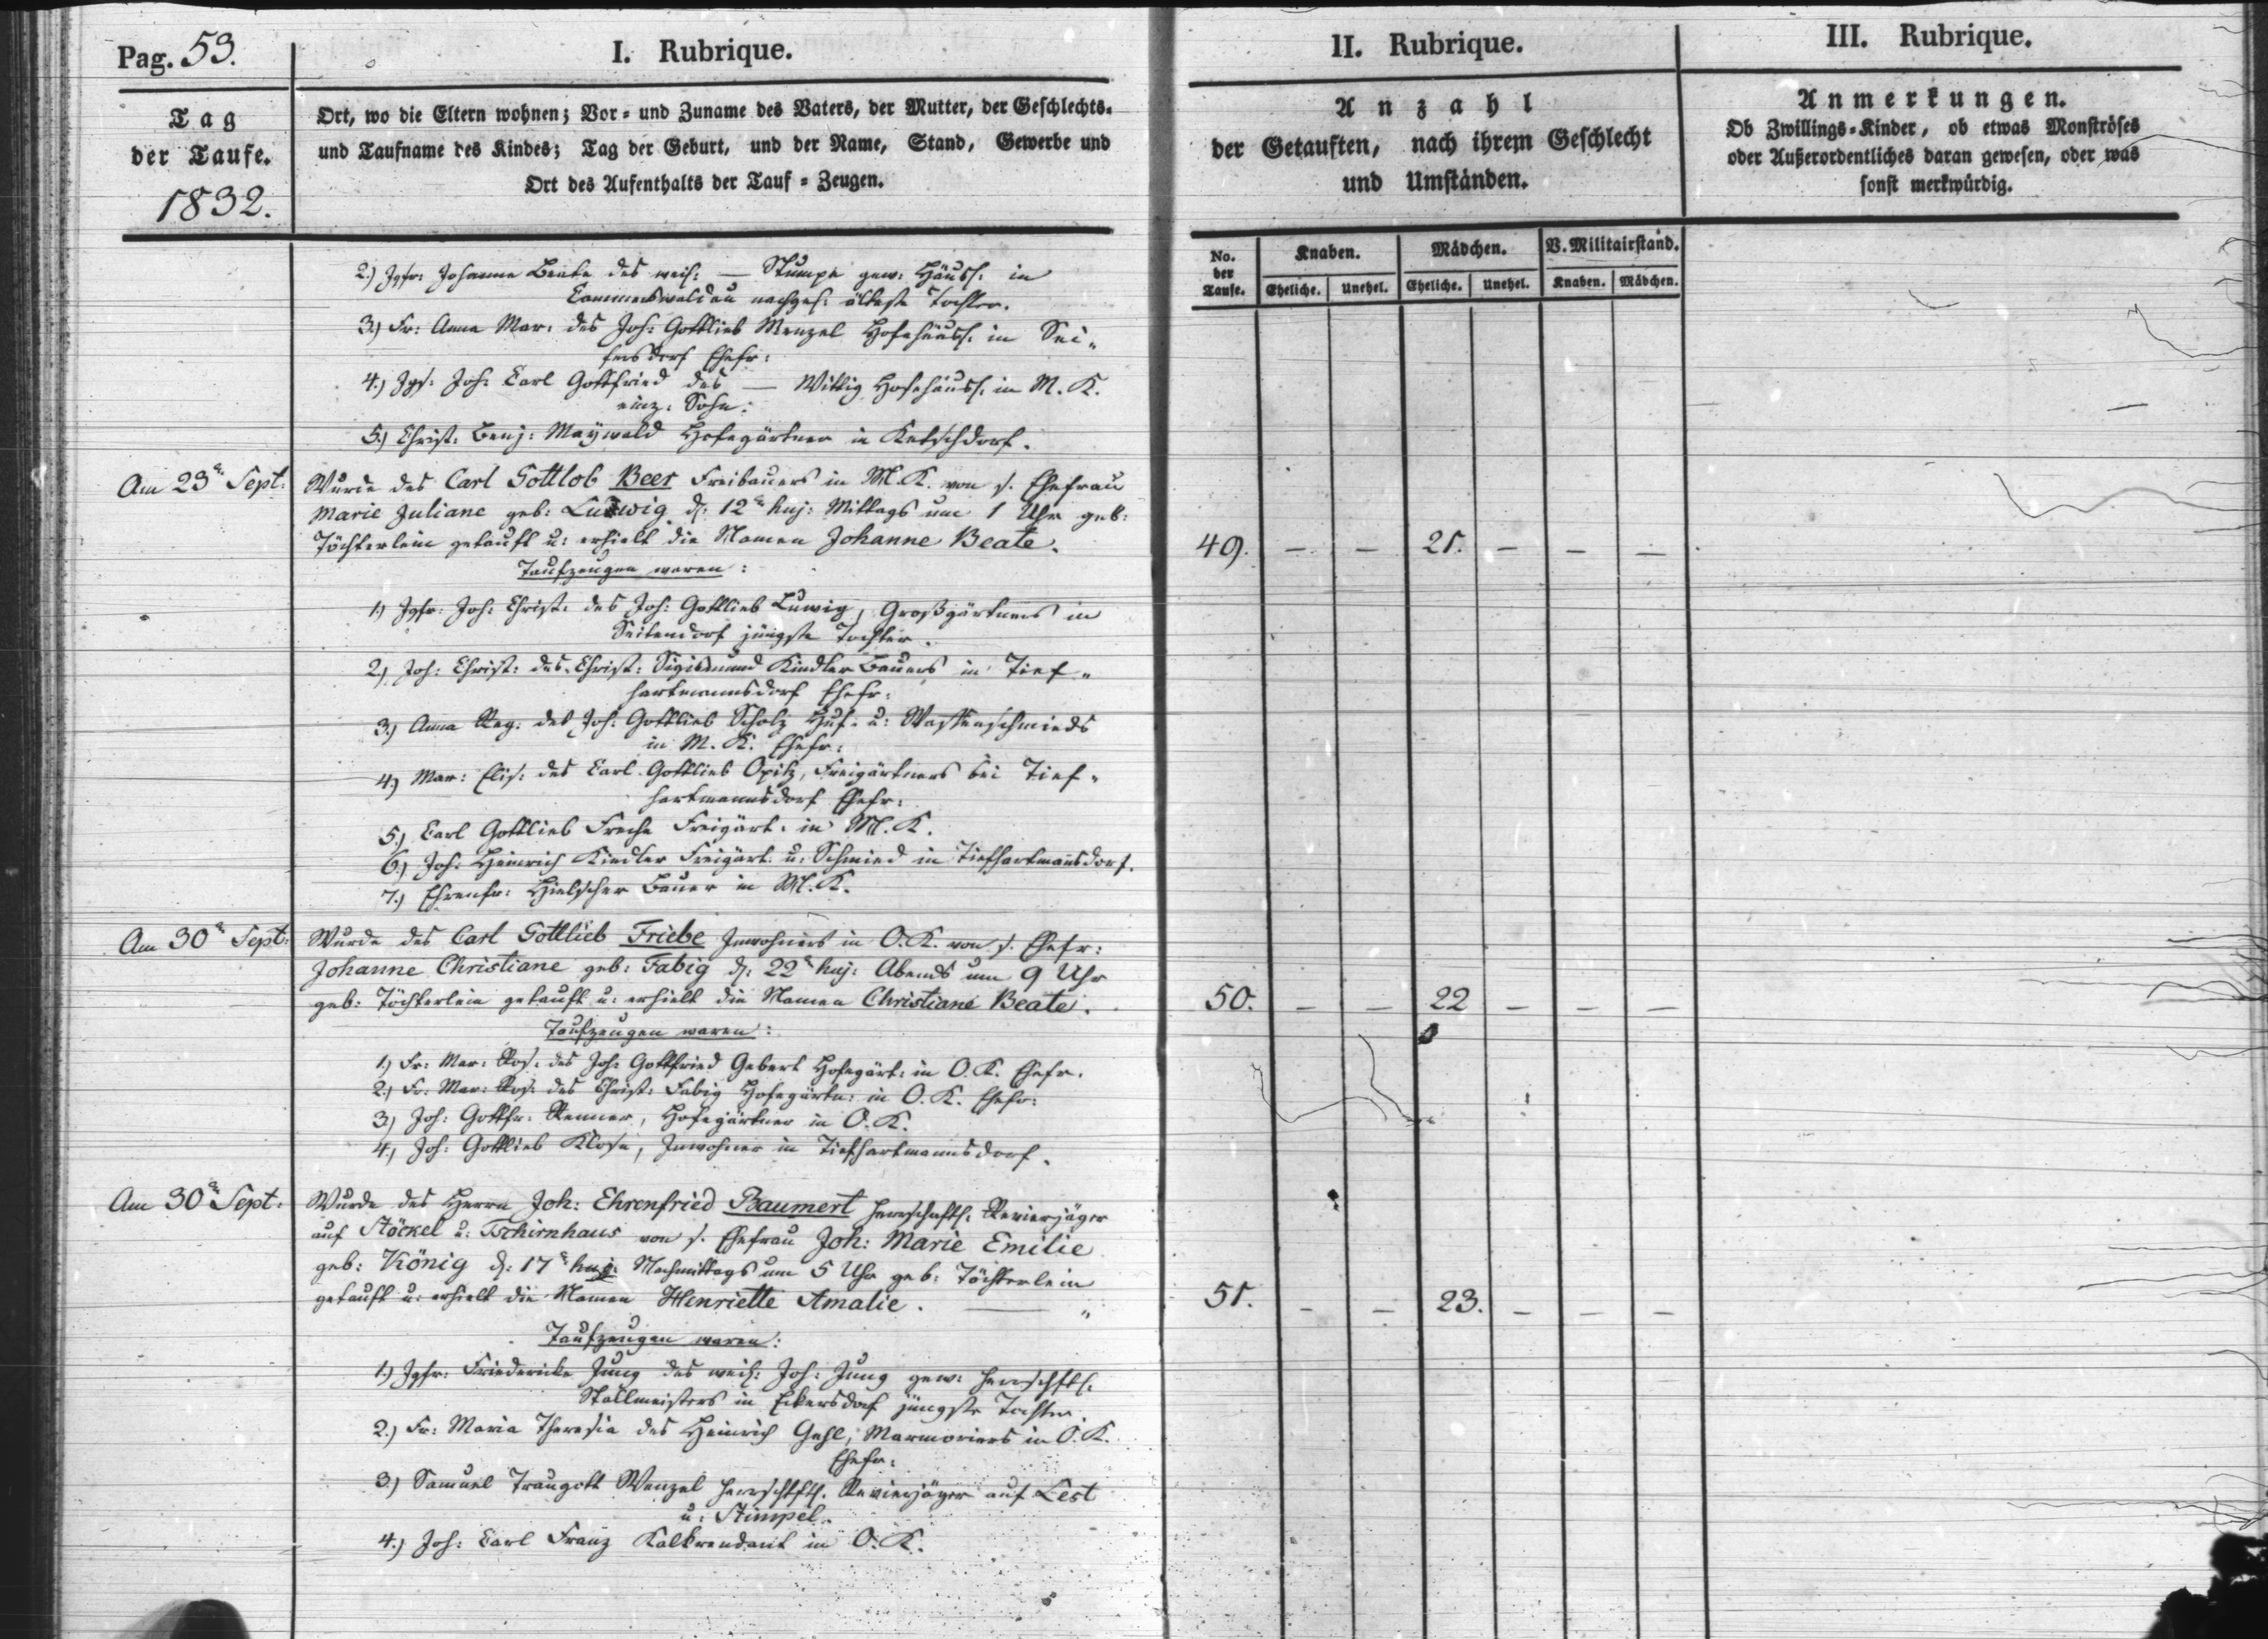 Pag. 53.
I. Rubrique.
II. Rubrique.
III. Rubrique.
Tag
der Taufe.
1832.
Ort, wo die Eltern wohnen; Vor- und Zuname des Vaters, der Mutter, der Geschlechts-
und Taufname des Kindes; Tag der Geburt, und der Name, Stand, Gewerbe und
Ort des Aufenthalts der Tauf-Zeugen.
Anzahl
der Getauften, nach ihrem Geschlecht
und Umständen.
Anmerkungen.
Ob Zwillings-Kinder, ob etwas Monströses
oder Außerordentliches daran gewesen, oder was
sonst merkwürdig.
No. der Taufe.
Knaben.
Mädchen.
V. Militairstand.
Eheliche. Unehel. Eheliche. Unehel. Knaben. Mädchen.
2.) Jgfr: Johanne Beate des weil: — Stumpe gew: Häusl. in
Cammerswaldau nachgel: älteste Tochter.
3.) Fr: Anna Mar: des Joh: Gottlieb Menzel Hofehäusl. in Sei-
fersdorf Ehefr:
4.) Jgs: Joh: Carl Gottfried des — Wittig Hofehäusl. in M. K.
einz: Sohn.
5.) Christ: Benj: Maywald Hofegärtner in Ketschdorf.
Am 23n Sept:
Wurde des Carl Gottlob Beer Freibauers in M. K. von s. Ehefrau
Marie Juliane geb: Ludwig d. 12n huj: Mittags um 1 Uhr geb:
Töchterlein getauft u: erhielt die Namen Johanne Beate.
49. — — 21. — — —
Taufzeugen waren:
1.) Jgfr: Joh: Christ: des Joh: Gottlieb Luwig, Großgärtners in
Seitendorf jüngste Tochter.
2.) Joh: Christ: des Christ: Sigismund Kindler Bauers in Tief-
hartmannsdorf Ehefr:
3.) Anna Reg: des Joh: Gottlieb Scholz Huf- u: Waffenschmieds
in M. K. Ehefr:
4.) Mar: Elis: des Carl Gottlieb Opitz, Freigärtners bei Tief-
hartmannsdorf Ehefr:
5.) Carl Gottlieb Freche Freigärt: in M. K.
6.) Joh: Heinrich Kindler Freigärt. u: Schmied in Tiefhartmannsdorf.
7.) Ehrenfr: Hielscher Bauer in M. K.
Am 30n Sept:
Wurde des Carl Gottlieb Friebe Inwohners in O. K. von s. Ehefr:
Johanne Christiane geb: Fabig d. 22n huj: Abends um 9 Uhr
geb: Töchterlein getauft u: erhielt die Namen Christiane Beate.
50. — — 22 — — —
Taufzeugen waren:
1.) Fr: Mar: Ros: des Joh: Gottfried Gebert Hofegärt: in O. K. Ehefr.
2.) Fr: Mar: Ros: des Christ: Fabig Hofegärtn: in O. K. Ehefr:
3.) Joh: Gottfr: Renner, Hofegärtner in O. K.
4.) Joh: Gottlieb Klose, Inwohner in Tiefhartmannsdorf.
Am 30n Sept:
Wurde des Herrn Joh: Ehrenfried Baumert herrschaftl. Revierjäger
auf Stöckel u: Tschirnhaus von s. Ehefrau Joh: Marie Emilie
geb: König d. 17n huj: Nachmittags um 5 Uhr geb: Töchterlein
getauft u: erhielt die Namen Henriette Amalie. —
51. — — 23. — — —
Taufzeugen waren:
1.) Jgfr: Friedericke Jung des weil: Joh: Jung gew: herrschftl:
Stallmeisters in Eckersdorf jüngste Tochter.
2.) Fr: Maria Theresia des Heinrich Gehl, Marmorirers in O. K.
Ehefr:
3.) Samuel Traugott Wenzel herrschftl. Revierjäger auf Lest
u: Stimpel.
4.) Joh: Carl Franz Kalkrendant in O. K.